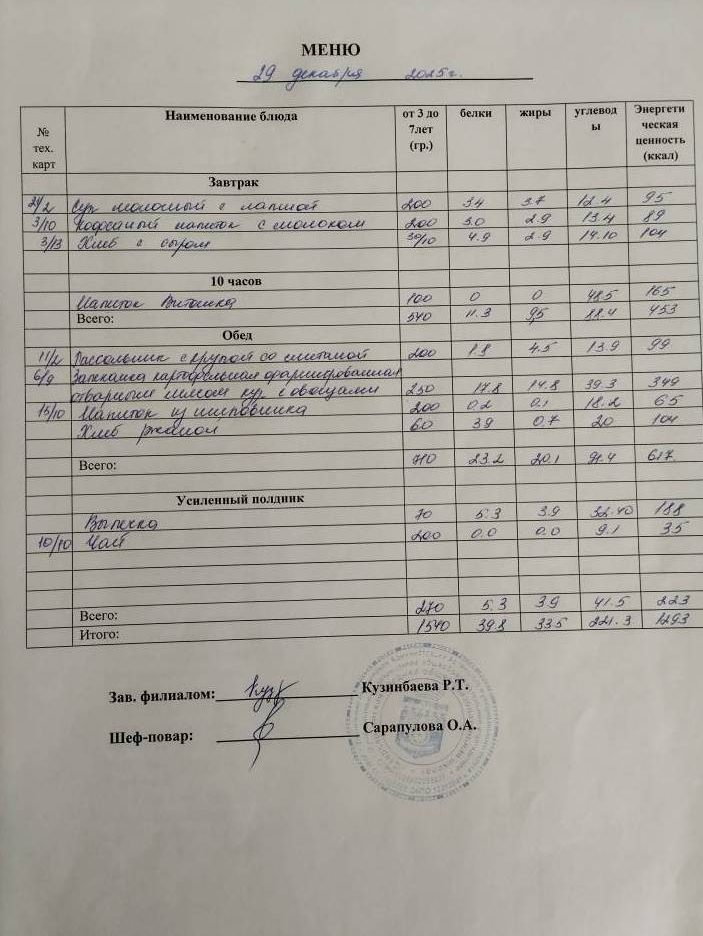 МЕНЮ
29 декабря 2025г.
№ тех. карт Наименование блюда от 3 до 7лет (гр.) белки жиры углеводы Энергетическая ценность (ккал)
Завтрак
24/2 Суп молочный с лапшой 200 3.4 3.7 12.4 95
3/10 Кофейный напиток с молоком 200 3.0 2.9 13.4 89
3/13 Хлеб с сыром 30/10 4.9 2.9 14.10 104
10 часов
Напиток Витошка 100 0 0 48.5 165
Всего: 540 11.3 9,5 88.4 453
Обед
11/2 Рассольник с крупой со сметаной 200 1.8 4.5 13.9 99
6/9 Запеканка картофельная фаршированная
отварным мясом кур с овощами 250 17.8 14.8 39.3 349
15/10 Напиток из шиповника 200 0.2 0.1 18.2 65
Хлеб ржаной 60 3.9 0.7 20 104
Всего: 710 23.2 20.1 91.4 617
Усиленный полдник
Выпечка 70 5.3 3.9 32.40 188
10/10 Чай 200 0.0 0.0 9.1 35
Всего: 270 5.3 3.9 41.5 223
Итого: 1540 39.8 33.5 221.3 1293
Зав. филиалом: Кузинбаева Р.Т.
Шеф-повар: Сарапулова О.А.